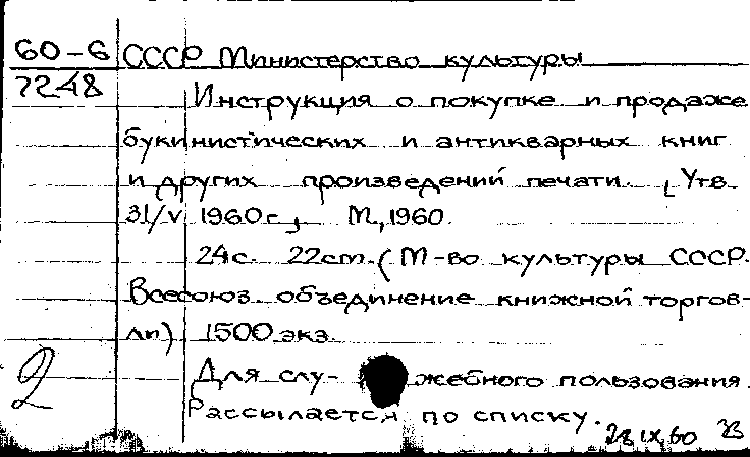 60-6 СССР Министерство культуры
7248
Инструкция о покупке и продаже
букинистических и антикварных книг
и других произведений печати. [Утв.
31/V 1960г.] М., 1960.
24с. 22cm. (М-во культуры СССР.
Всесоюз. объединение книжной торгов-
ли) 1500 экз.
2 Для слу- жебного пользования.
Рассылается по списку.
28 IX 60